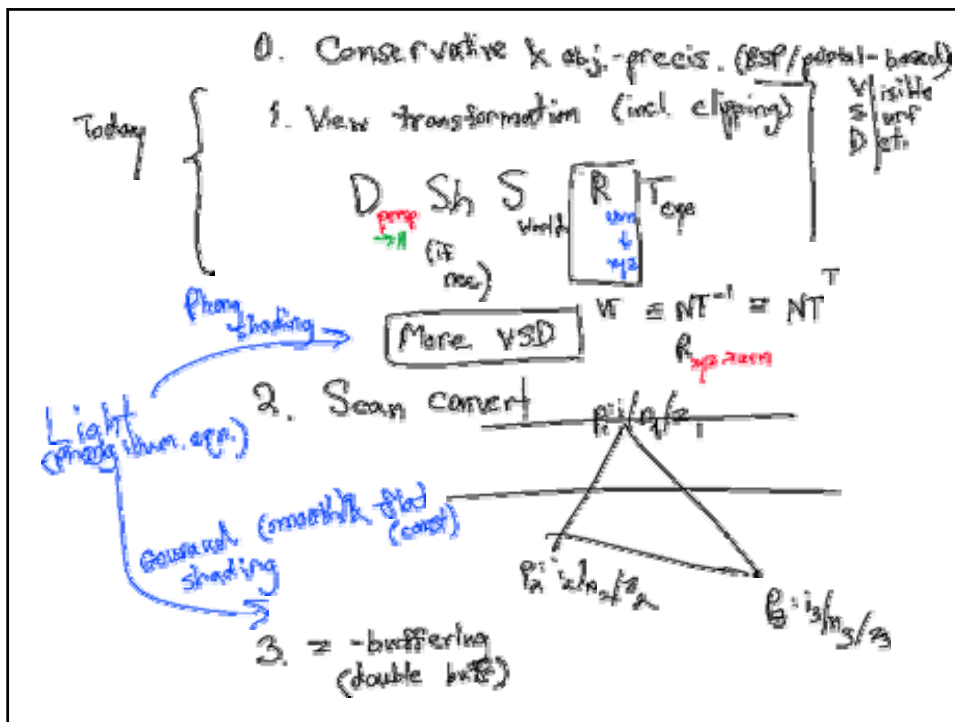 0. Conservative & obj.-precis. (BSP/portal-based)
Today
1. View transformation (incl. clipping)
V isible
S urf
D et.
D persp → ∥ Sh (if nec.) S world R uvn ↓ xyz T eye
Phong shading
More VSD
VT ≡ NT⁻¹ ≡ NTᵀ
R xyz→uvn
2. Scan convert
Light
(phong illum. eqn.)
P₁: i₁/n₁/z₁
Gouraud (smooth) & flat (const)
shading
P₂: i₂/n₂/z₂
P₃: i₃/n₃/z₃
3. z-buffering
(double buff)